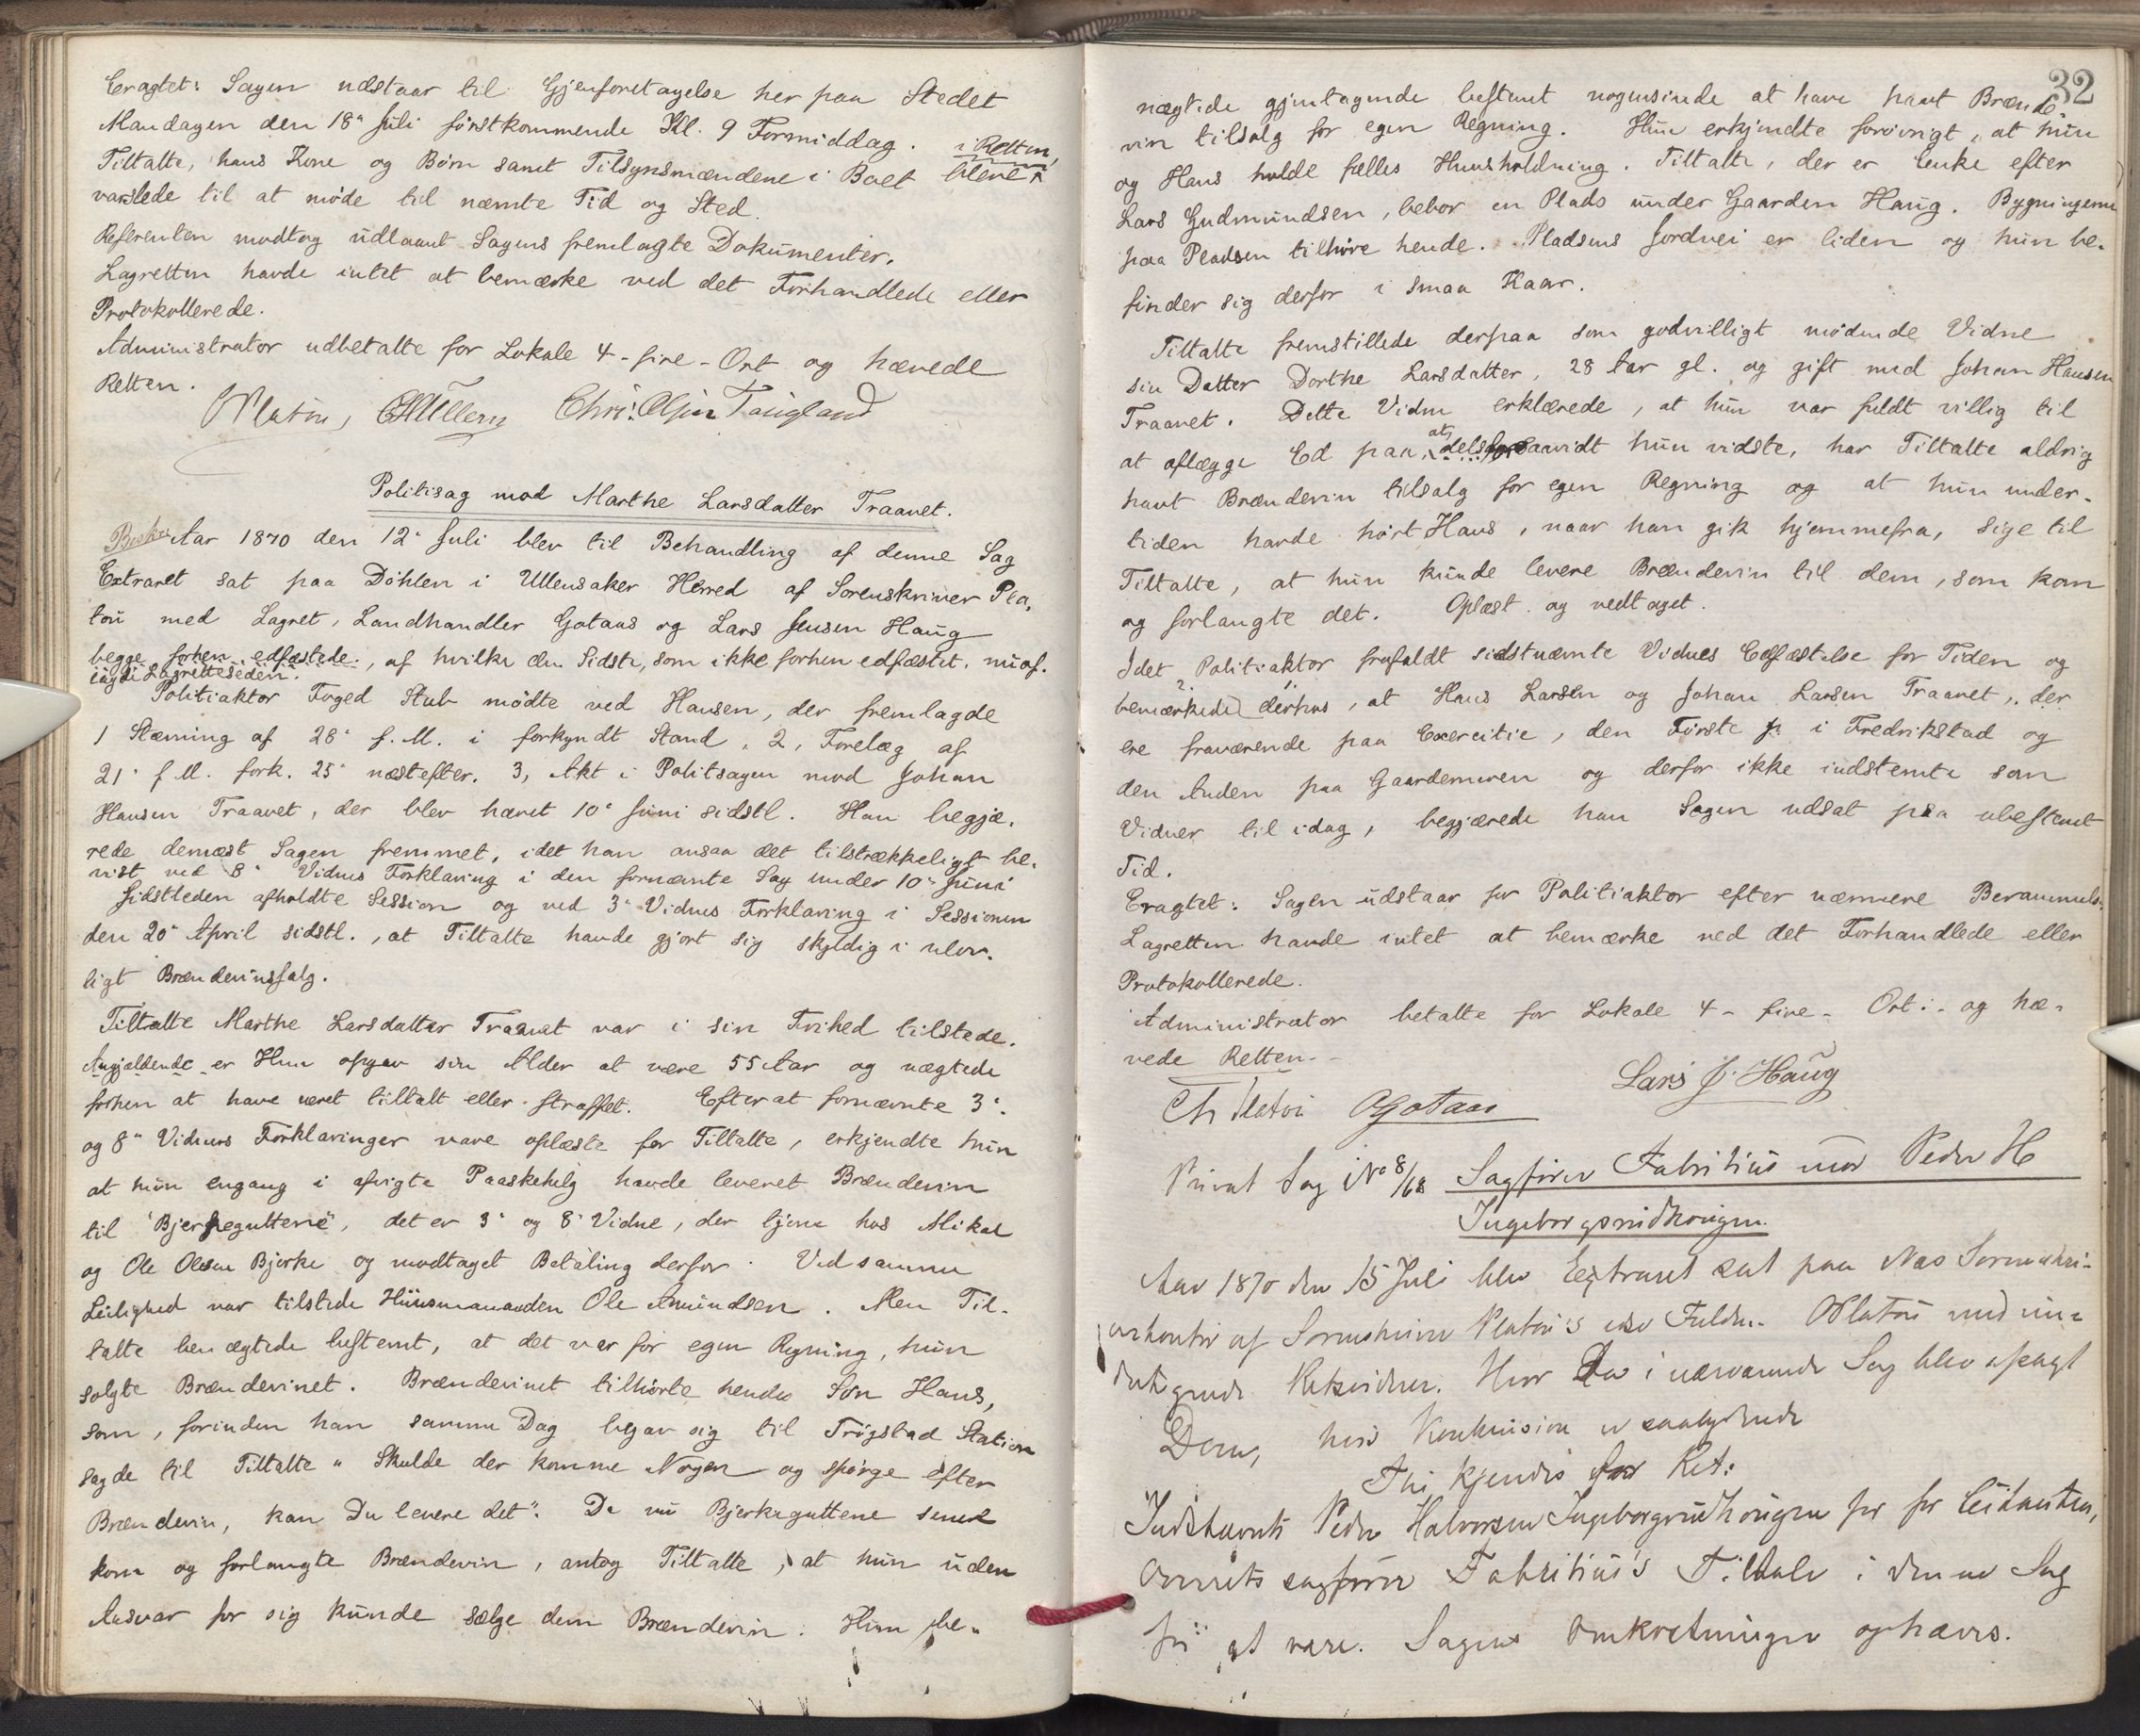 Eragtet: Sagen udstaar til Gjenforetagelse her paa Stedet
Mandagen den 18de Juli førstkommende Kl. 9 Formiddag. i Retten
Tiltalte, hans Kone og Børn samt Tilsynsmændene i Boet bleve
varslede til at møde til nævnte Tid og Sted.
Referenten modtog udlaant Sagens fremlagte Dokumenter.
Lagretten havde intet at bemærke ved det Forhandlede eller
Protokollerede.
Administrator udbetalte for Lokale 4 - fire - Ort og hævede
Retten.
Platou, Chr. Olsen
Politisag mod Marthe Larsdatter Traanet.
Beskr. Aar 1870 den 12te Juli blev til Behandling af denne Sag
Extraret sat paa Døhlen i Ullensaker Herred af Sorenskriver Pla-
tou med Lagret, Landhandler Gotaas og Lars Jensen Haug
begge forhen edfæstede, af hvilke den Sidste, som ikke forhen edfæstet, nu af-
lagde Lagretteseden.
Politiaktor Foged Stub mødte ved Hansen, der fremlagde
1 Stævning af 28de f. M. i forkyndt Stand, 2, Forelæg af
21de f M. fork. 25de næstefter. 3, Akt i Politisagen mod Johan
Hansen Traanet, der blev hævet 10de Juni sidstl. Han begjæ-
rede dernæst Sagen fremmet, idet han ansaa det tilstrækkeligt be-
vist ved 8de Vidnes Forklaring i den fornævnte Sag under 10de Juni
sidstleden afholdte Session og ved 3de Vidnes Forklaring i Sessionen
den 20de April sidstl., at Tiltalte havde gjort sig skyldig i ulov-
ligt Brændevinssalg.
Tiltalte Marthe Larsdatter Traanet var i sin Frihed tilstede.
Angjældende er Hun opgav sin Alder at være 55 Aar og nægtede
forhen at have været tiltalt eller straffet. Efter at fornævnte 3de
og 8de Vidners Forklaringer vare oplæste for Tiltalte, erkjendte hun
at hun engang i afvigte Paaskehelg havde leveret Brændevin
til "Bjerkegutterne", det er 3de og 8de Vidne, der tjene hos Mikal
og Ole Olsen Bjerke og modtaget Betaling derfor. Ved samme
Leilighed var tilstede Huusmanden Ole Amundsen. Men Til-
talte benægtede bestemt, at det var for egen Regning, hun
solgte Brændevinet. Brændevinet tilhørte hendes Søn Hans,
som, forinden han samme Dag begav sig til Trøgstad Station
sagde til Tiltalte "Skulde der komme Nogen og spørge efter
Brændevin, kan Du levere det". Da nu Bjerkeguttene senere
kom og forlangte Brændevin, antog Tiltalte, at hun uden
Ansvar for sig kunde sælge dem Brændevin. Hun be-
32
nægtede gjentagende bestemt nogensinde at have havt Brænde-
vin tilsalg for egen Regning. Hun erkjendte forøvrigt, at hun
og Hans holde fælles Huusholdning. Tiltalte, der er Enke efter
Lars Gudmundsen, bebor en Plads under Gaarden Haug. Bygningerne
paa Pladsen tilhøre hende. Pladsens Jordvei er liden og hun be-
finder sig derfor i smaa Kaar.
Tiltalte fremstillede derpaa som godvilligt mødende Vidne
sin Datter Dorthe Larsdatter, 28 Aar gl. og gift med Johan Hansen
Traanet. Dette Vidne erklærede, at hun var fuldt villig til
at aflægge Ed paa, at, dels saavidt hun vidste, har Tiltalte aldrig
havt Brændevin tilsalg for egen Regning og at hun under-
tiden havde hørt Hans, naar han gik hjemmefra, sige til
Tiltalte, at hun kunde levere Brændevin til dem, som kom
og forlangte det. Oplæst og vedtaget.
Idet Politiaktor frafaldt sidstnævnte Vidnes Edfæstelse for Tiden og
bemærkede derhos, at Hans Larsen og Johan Larsen Traanet, der
ere fraværende paa Exercitie, den Første i Fredrikstad og
den Anden paa Gaardermoen og derfor ikke indstevnte som
Vidner til idag, begjærede han Sagen udsat paa ubestemt
Tid.
Eragtet: Sagen udstaar for Politiaktor efter nærmere Berammelse.
Lagretten havde intet at bemærke ved det Forhandlede eller
Protokollerede.
Administrator betalte for Lokale 4 - fire - Ort - og hæ-
vede Retten. -
Ch Platou OGotaas Lars J. Haug
Privat Sag No 8/68 Sagfører Fabritius mod Peder H
Ingeborgsrudhougen.
Aar 1870 den 15 Juli blev Extraret sat paa Næs Sorenskri-
verkontor af Sorenskriver Platou's Fuldm. OPlatou med un-
dertegnede Retsvidner. Hvor da i nærværende Sag blev afsagt
Dom, hvis Konklusion er saalydende
Thi kjendes for Ret:
Indstævnte Peder Halvorsen Ingeborgsrudhougen bør for Citanten,
Overretssagfører Fabritius's Tiltale i denne Sag
fri at være. Sagens Omkostninger ophæves.